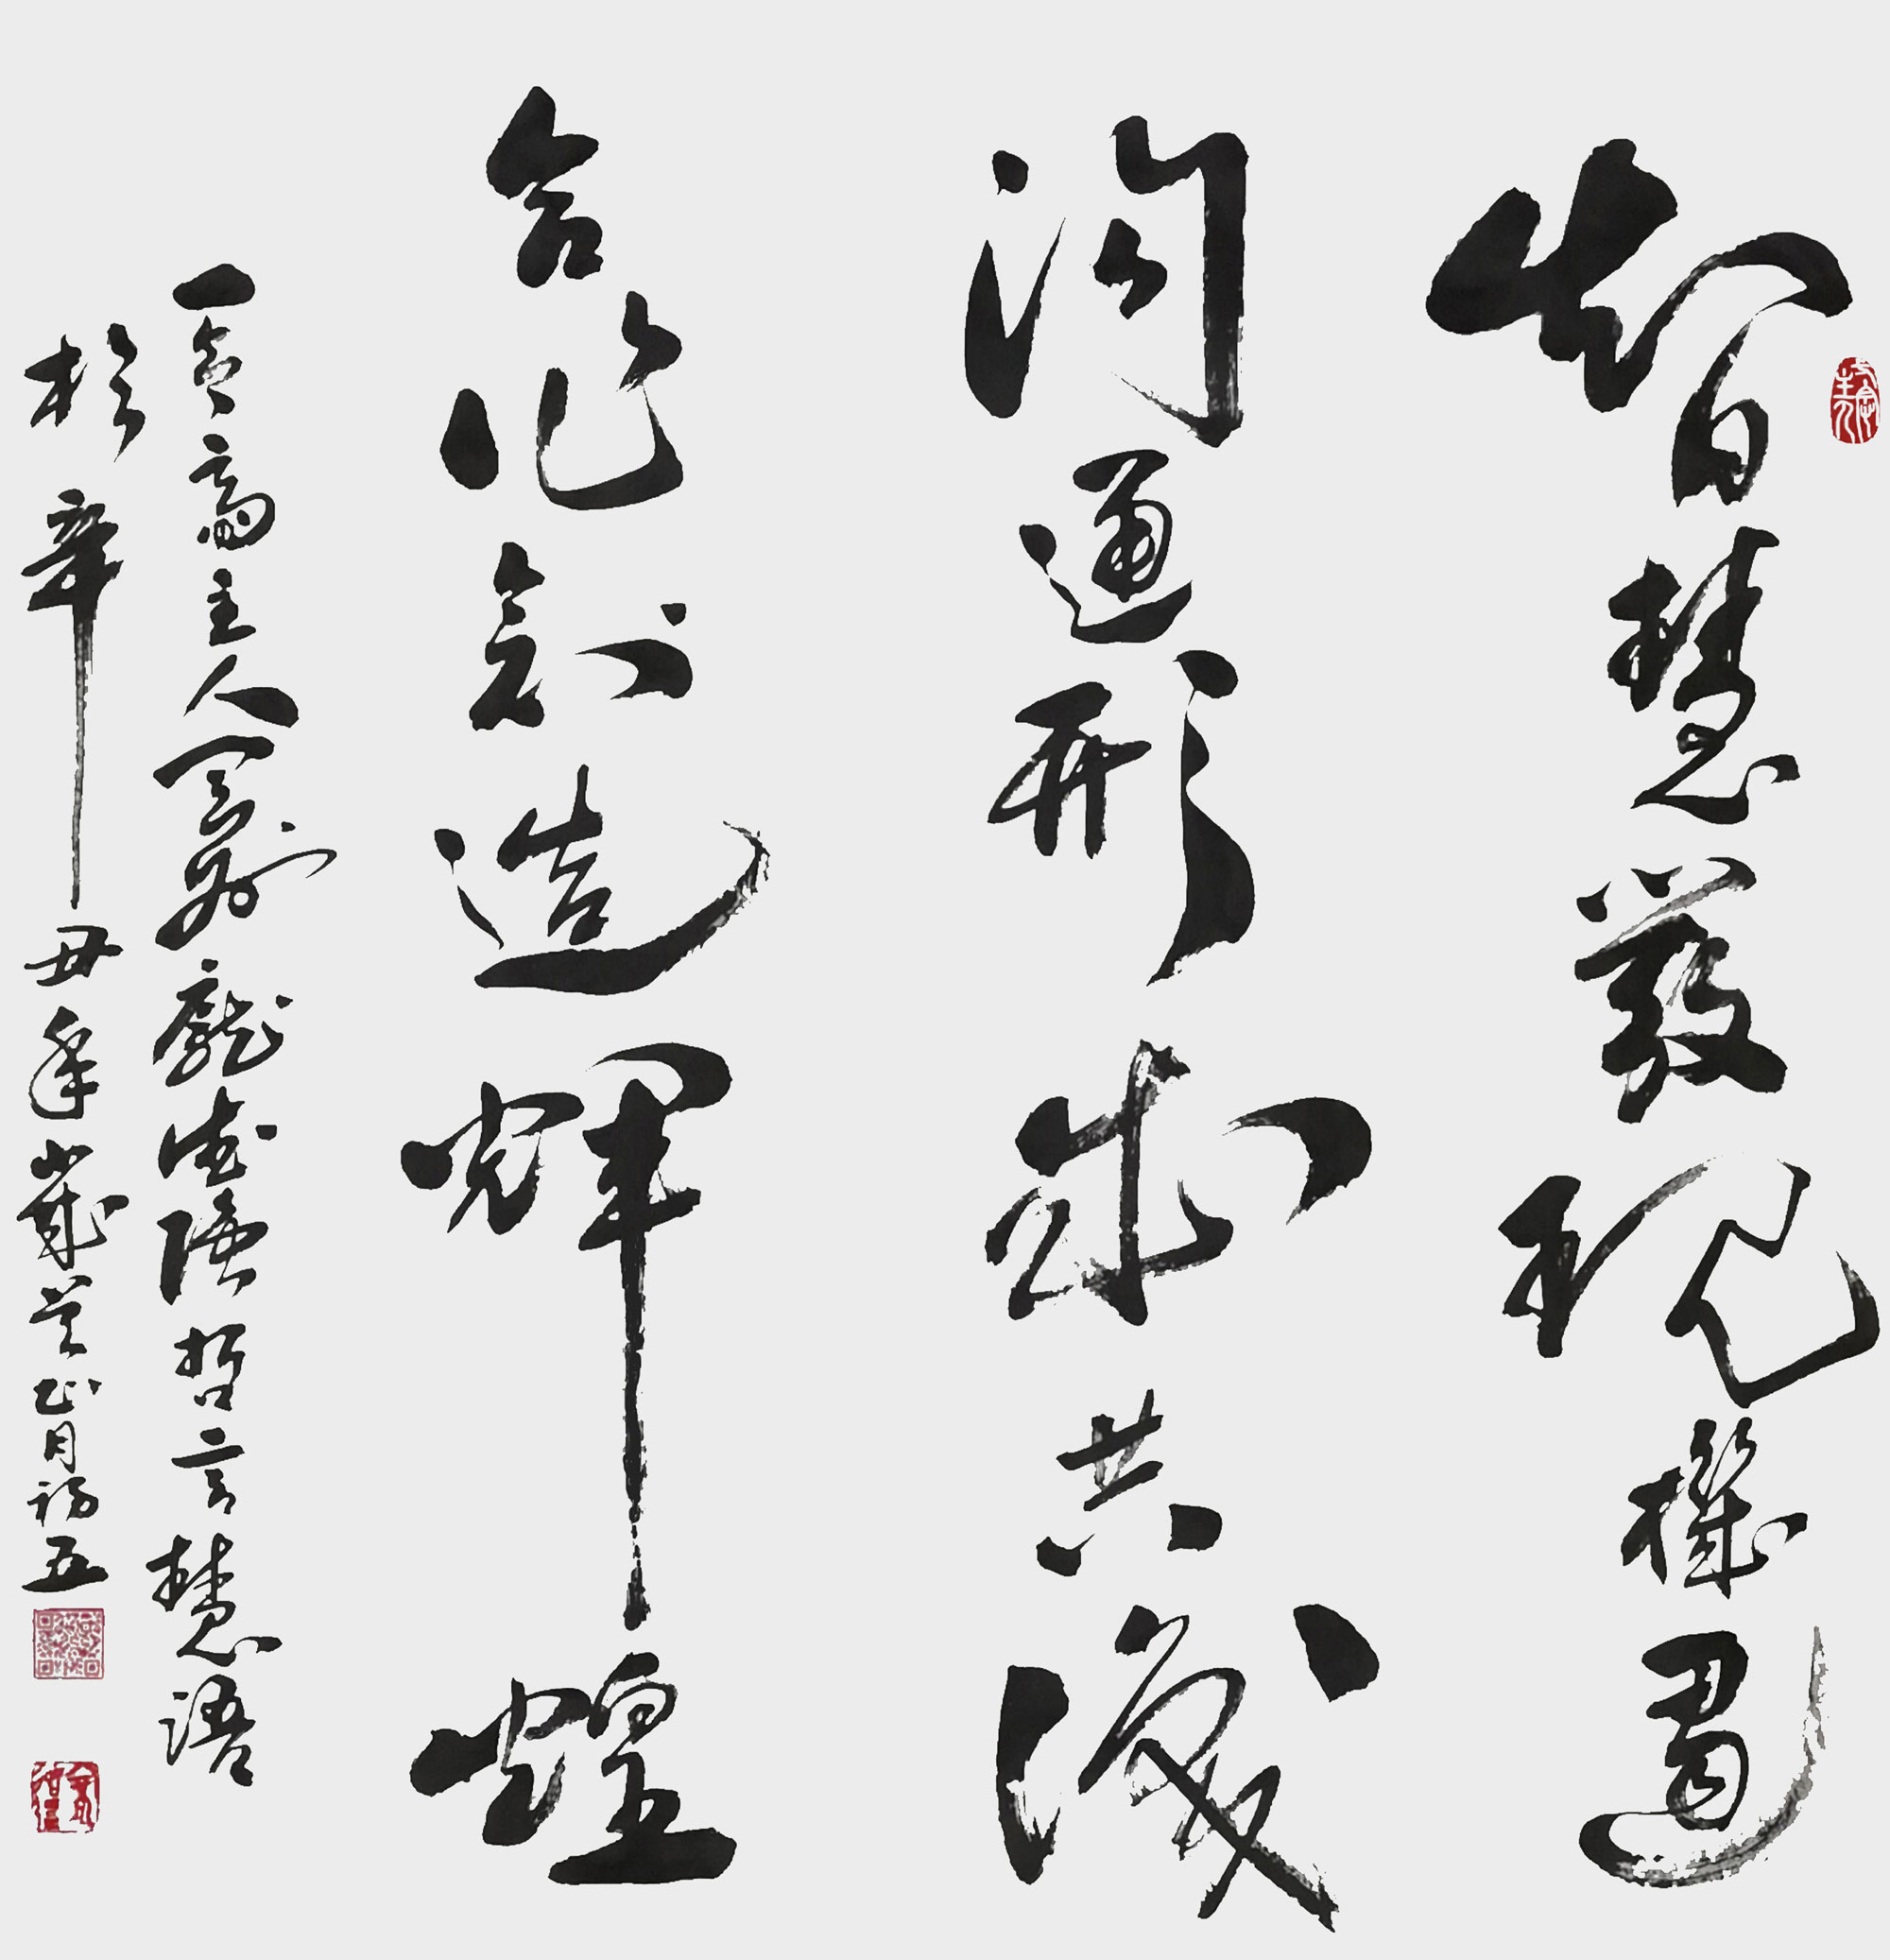 智慧發現機遇
沟通形成共識
合作創造輝煌
一齋主人哲言慧語
於辛丑年歲首正月初五